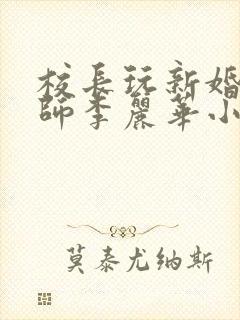 校長玩新婚
師李麗華小
莫泰尤纳斯